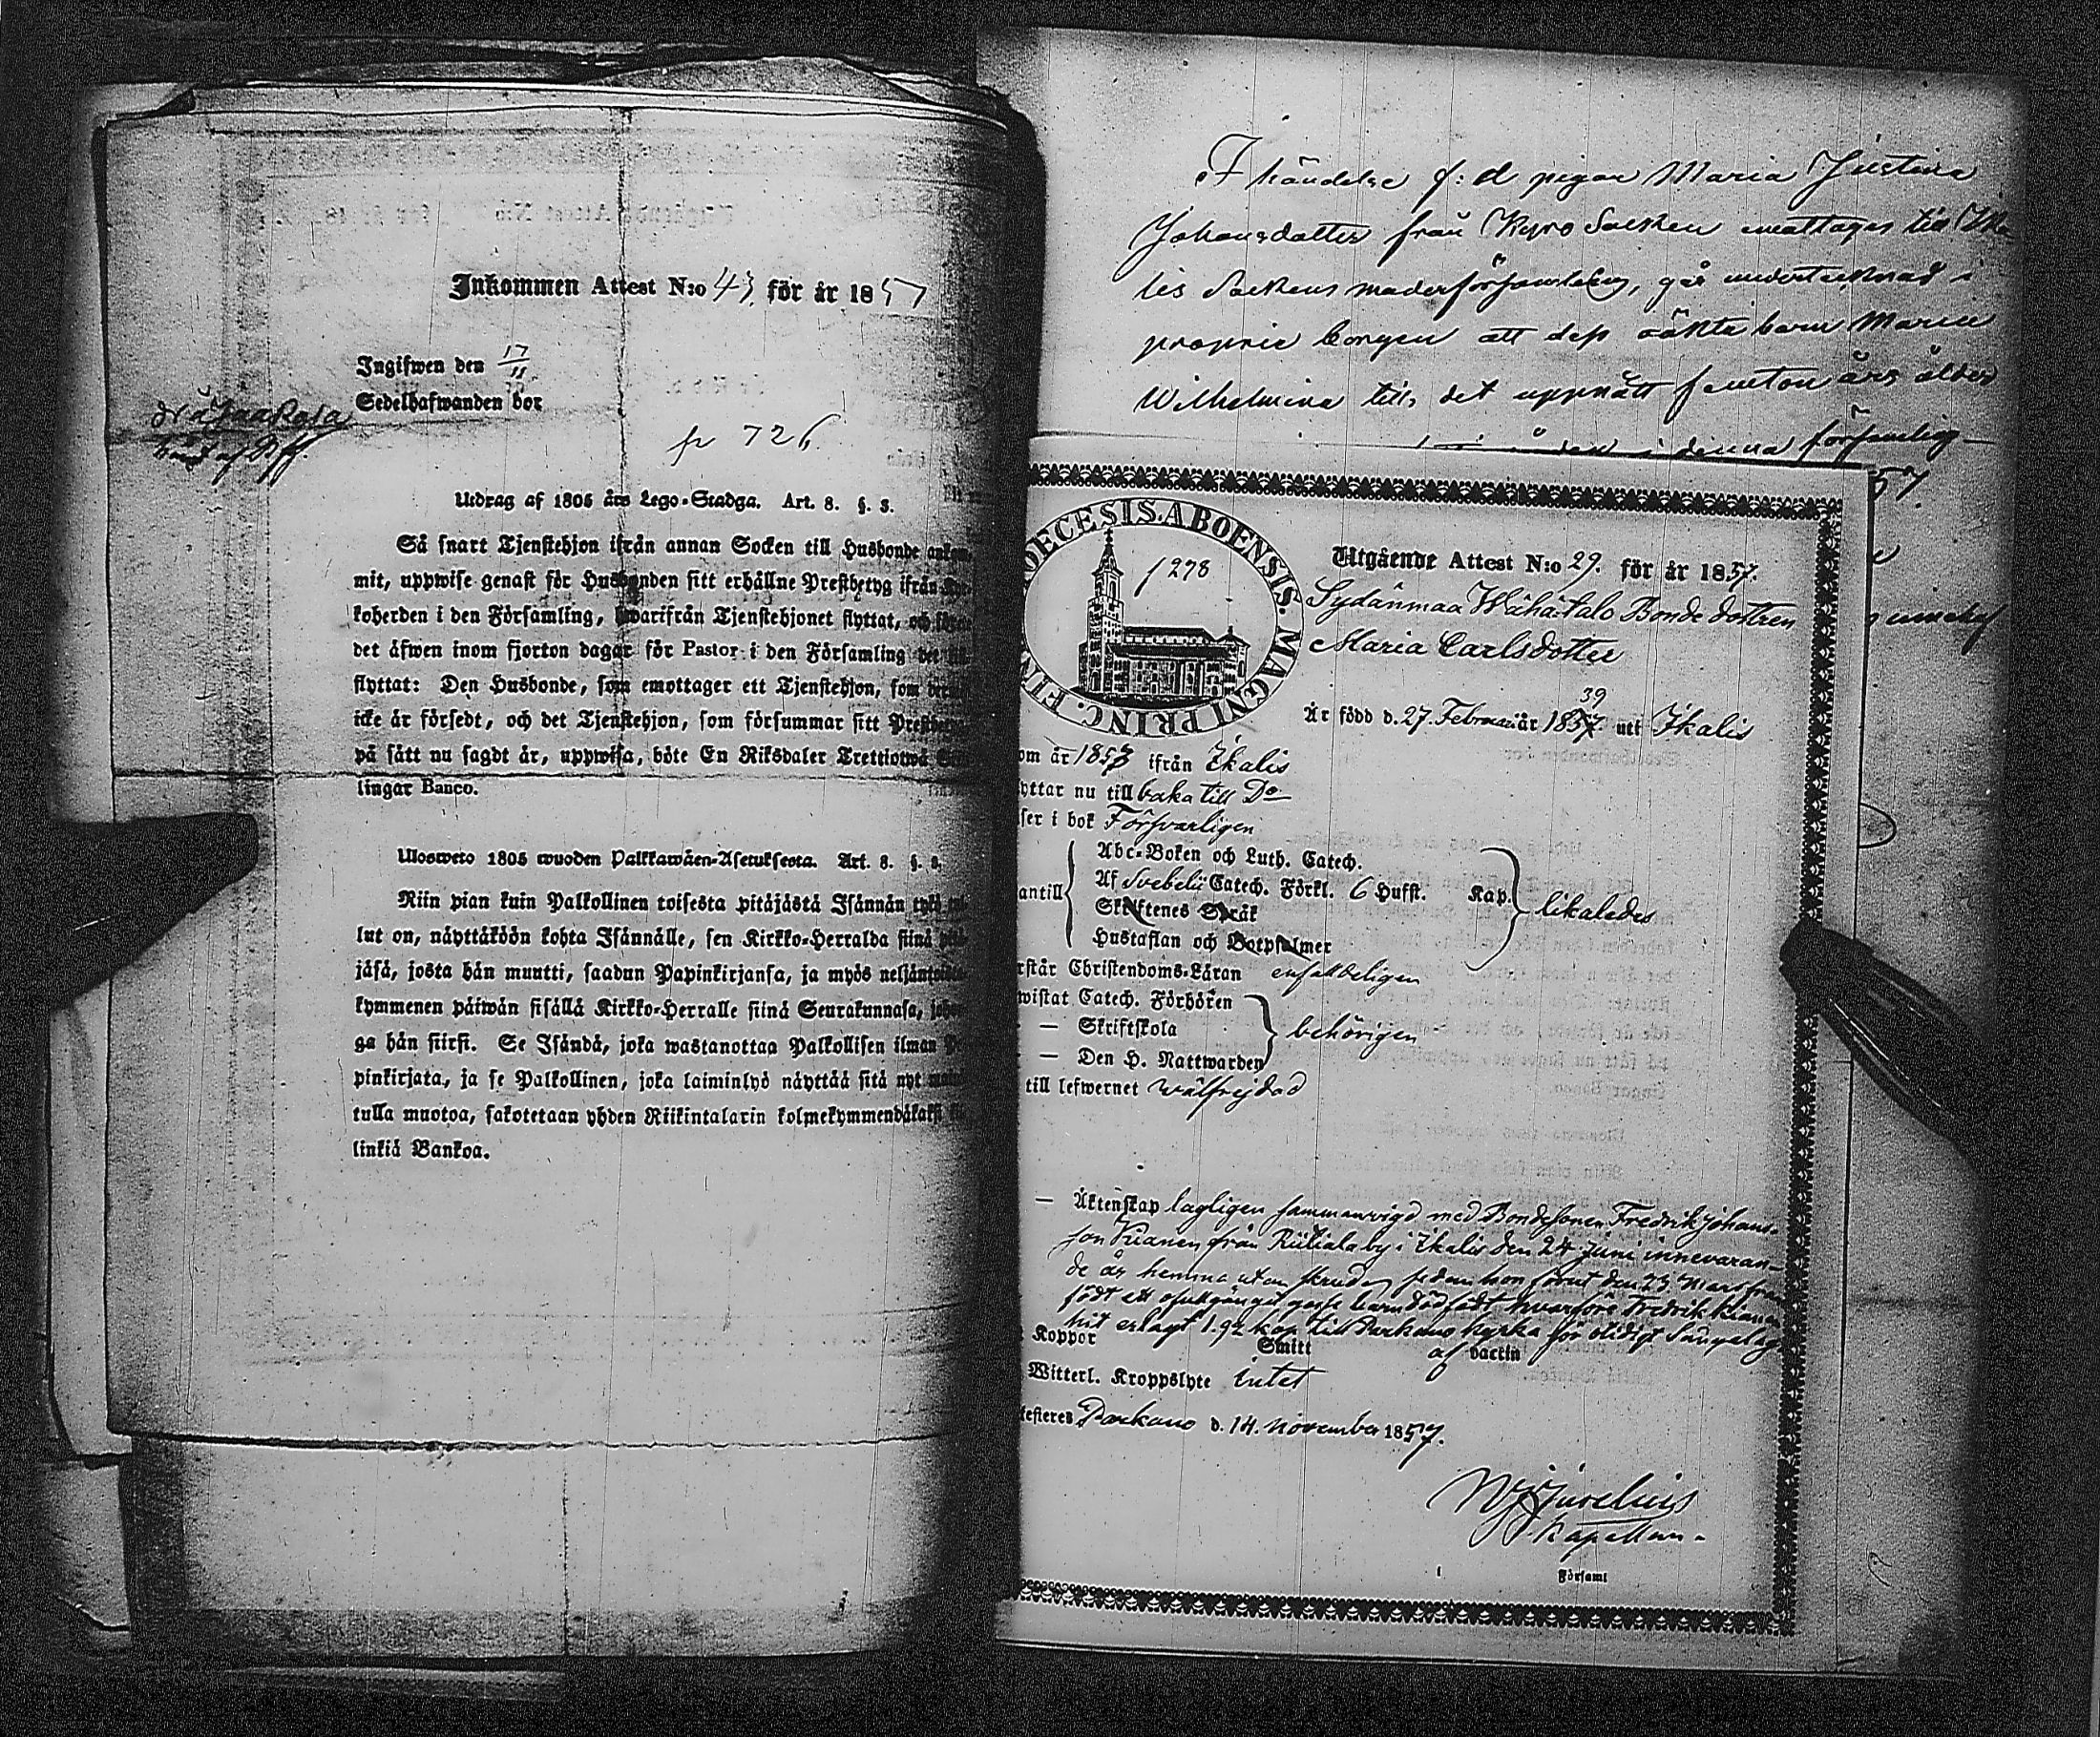 Inkommen Attest N:o 43 för år 1857
Ingifwen den 17/11
Sedelhafwanden bor
p 726
Utdrag af 1805 års Lego-Stadga. Art. 8. §. 8.
Så snart Tjenstehjon ifrån annan Socken till Husbonde
mit, uppwise genast för Husbonden sitt erhållne Prestbetyg ifrån
koherden i den Församling, hwarifrån Tjenstehjonet flyttat, och
det åfwen inom fjorton dagar för Pastor i den Församling det
flyttat: Den Husbonde, som emottager ett Tjenstehjon, som
icke är försedt, och det Tjenstehjon, som försummar sitt
på sätt nu sagdt är, uppwisa, böte En Riksdaler Trettiotwå
lingar Banco.
Ulosweto 1805 wuoden Palkkawäen-Asetuksesta. Art. 8. §. 8.
Niin pian kuin Palkollinen toisesta pitäjästä Isännän tykö
lut on, näyttäköön kohta Isännälle, sen Kirkko-Herralda siinä
jäsä, josta hän muutti, saadun Papinkirjansa, ja myös
kymmenen päiwän sisällä Kirkko-Herralle siinä Seurakunnasa,
ga hän siirsi. Se Isändä, joka wastanottaa Palkollisen ilman
pinkirjata, ja se Palkollinen, joka laiminlyö näyttää sitä nyt
tulla muotoa, sakotetaan yhden Riikintalarin kolmekymmendäkaksi
linkiä Bankoa.
I händelse f: d pigan Maria Justina
Johansdotter från Kyro Socken emottages till
lis Sockens moderförsamling, går undertecknad i
proprie borgen att dess oäkta barn Maria
Wilhelmina tills det uppnått femton års ålder
i denna församling
57
DIOECESIS ABOENSIS MAGNI PRINC. FIN
p 278
Utgående Attest N:o 29. för år 1857.
Sydänmaa Wähätalo Bonde dottren
Maria Carlsdotter
39
Är född d. 27. Februari år 1837. uti Ikalis
om år 1857 ifrån Ikalis
yttar nu till baka till Do
ser i bok Försvarligen
antill
Abc-Boken och Luth. Catech.
Af Svebelii Catech. Förkl. 6 Hufst. Kap.
Skriftenes Språk
Hustaflan och Botpsalmer
likaledes
rstår Christendoms-Läran enfaldeligen
wistat Catech. Förhören
— Skriftskola
— Den H. Nattwarden
behörigen
till lefwernet wälfrejdad
— Äktenskap lagligen sammanvigd med Bondesonen Fredrik Johans-
son Kianen från Riitiala by i Ikalis den 24 Juni innevaran-
de år hemma utan skrud, sedan hon förut den 23 Mars
födt ett gosse barn dödfödt, hvarföre Fredrik Kianen
hit erlagt 1.92 kop till Parkano kyrka för otidigt Sängelag
Koppor Smitt af vaccin
Witterl. Kroppslyte intet
testeres Parkano d. 14. November 1857.
Kapellan.
Församl